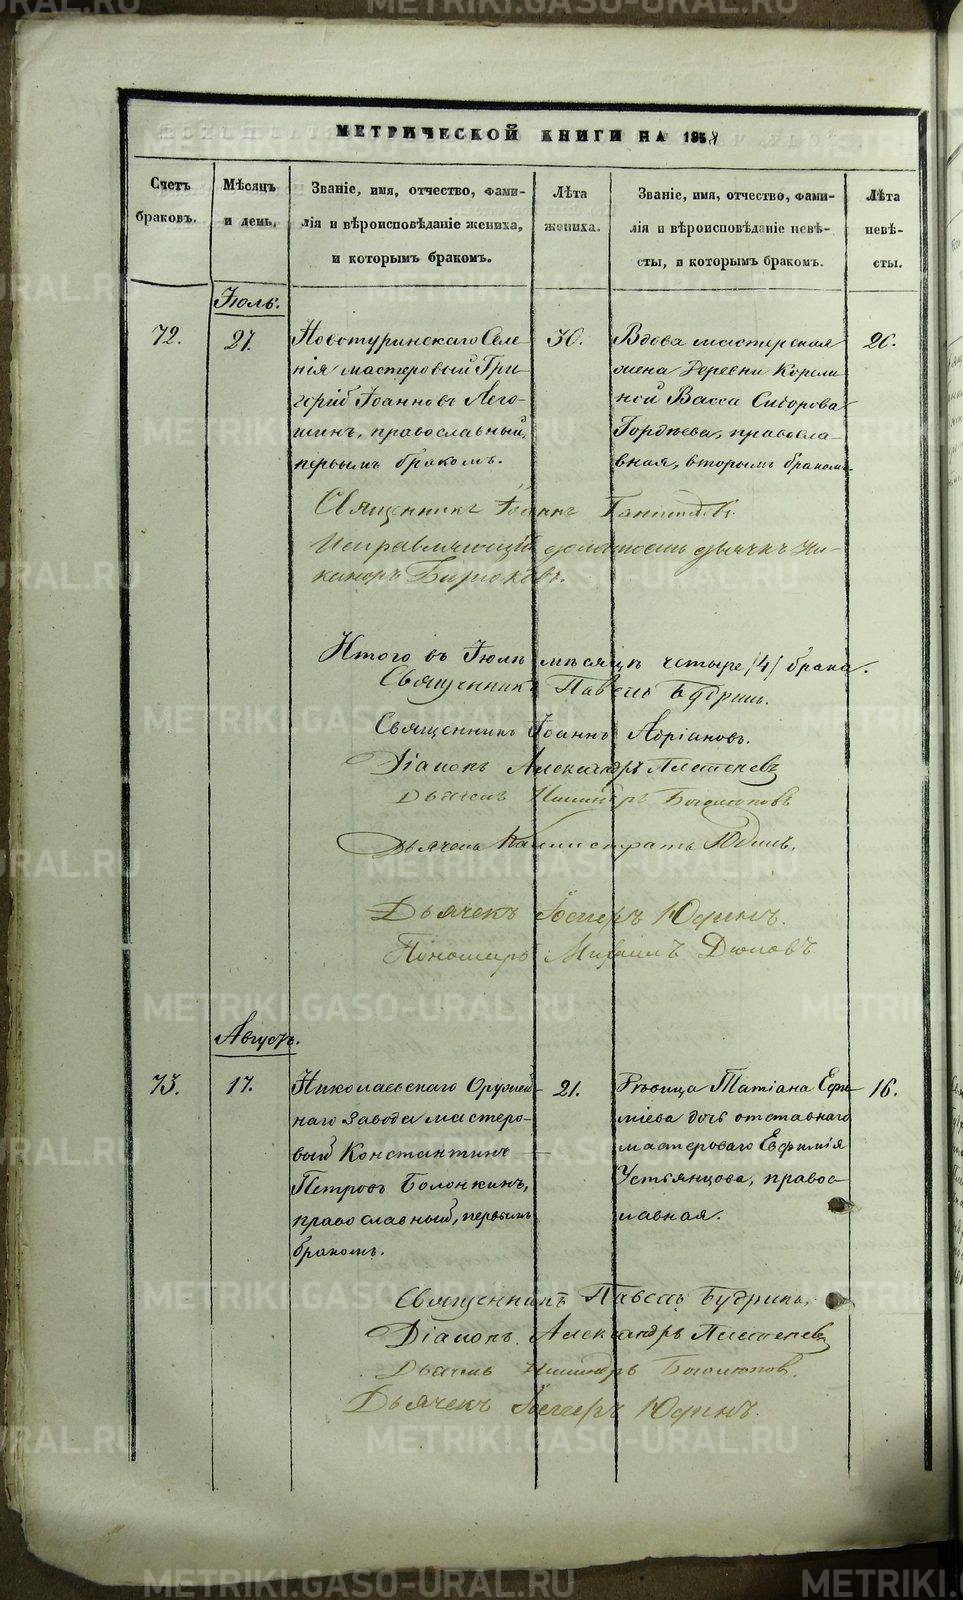 МЕТРИЧЕСКОЙ КНИГИ НА 1858
Счетъ браковъ.
Мѣсяцъ и день.
Званіе, имя, отчество, фами-
лія и вѣроисповѣданіе жениха,
и которымъ бракомъ.
Лѣта жениха.
Званіе, имя, отчество, фами-
лія и вѣроисповѣданіе невѣ-
сты, и которымъ бракомъ.
Лѣта невѣ-
сты.
Іюль.
72.
27.
Новотуринскаго Селе
нія мастеровый Гри-
горій Іоанновъ Лего-
шинъ, православный,
первымъ бракомъ.
30.
Вдова мастерская
жена Деревни Корели
ной Васса Сидорова
Гордѣева, правосла-
вная, вторымъ бракомъ.
26.
Священникъ Іоаннъ
Исправляющій должность дьячка Ни-
каноръ Бирюковъ.
Итого въ Іюлѣ мѣсяцѣ четыре /4/ брака.
Священникъ Павелъ Будринъ.
Священникъ Іоаннъ Адріановъ.
Діаконъ Александръ Плетеневъ
Дьячекъ Боголюбовъ
Дьячекъ Каллистратъ Юдинъ.
Дьячекъ Юдинъ.
Пономарь Михаилъ
Августъ.
73.
17.
Николаевскаго Оружей-
наго Завода мастеро-
вый Константинъ
Петровъ Болонкинъ,
православный, первымъ
бракомъ.
21.
Дѣвица Татіана Ефи-
міева дочь отставнаго
мастероваго Евфимія
Устьянцова, правос-
лавная.
16.
Священникъ Павелъ Будринъ.
Діаконъ Александръ Плетеневъ
Дьячекъ Боголюбовъ.
Дьячекъ Юдинъ.
METRIKI.GASO-URAL.RU